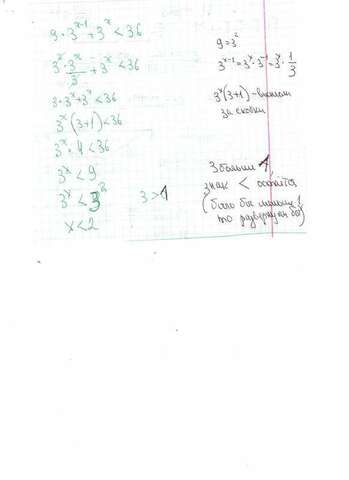 9 · 3^(x-1) + 3^x < 36
3^2 · 3^x/3 + 3^x < 36
3 · 3^x + 3^x < 36
3^x (3+1) < 36
3^x · 4 < 36
3^x < 9
3^x < 3^2
x < 2
3 > 1
9 = 3^2
3^(x-1) = 3^x · 3^(-1) = 3^x · 1/3
3^x (3+1) -
за скобки
3 больше 1
знак < остаётся
(было бы меньше 1
то развернули бы)